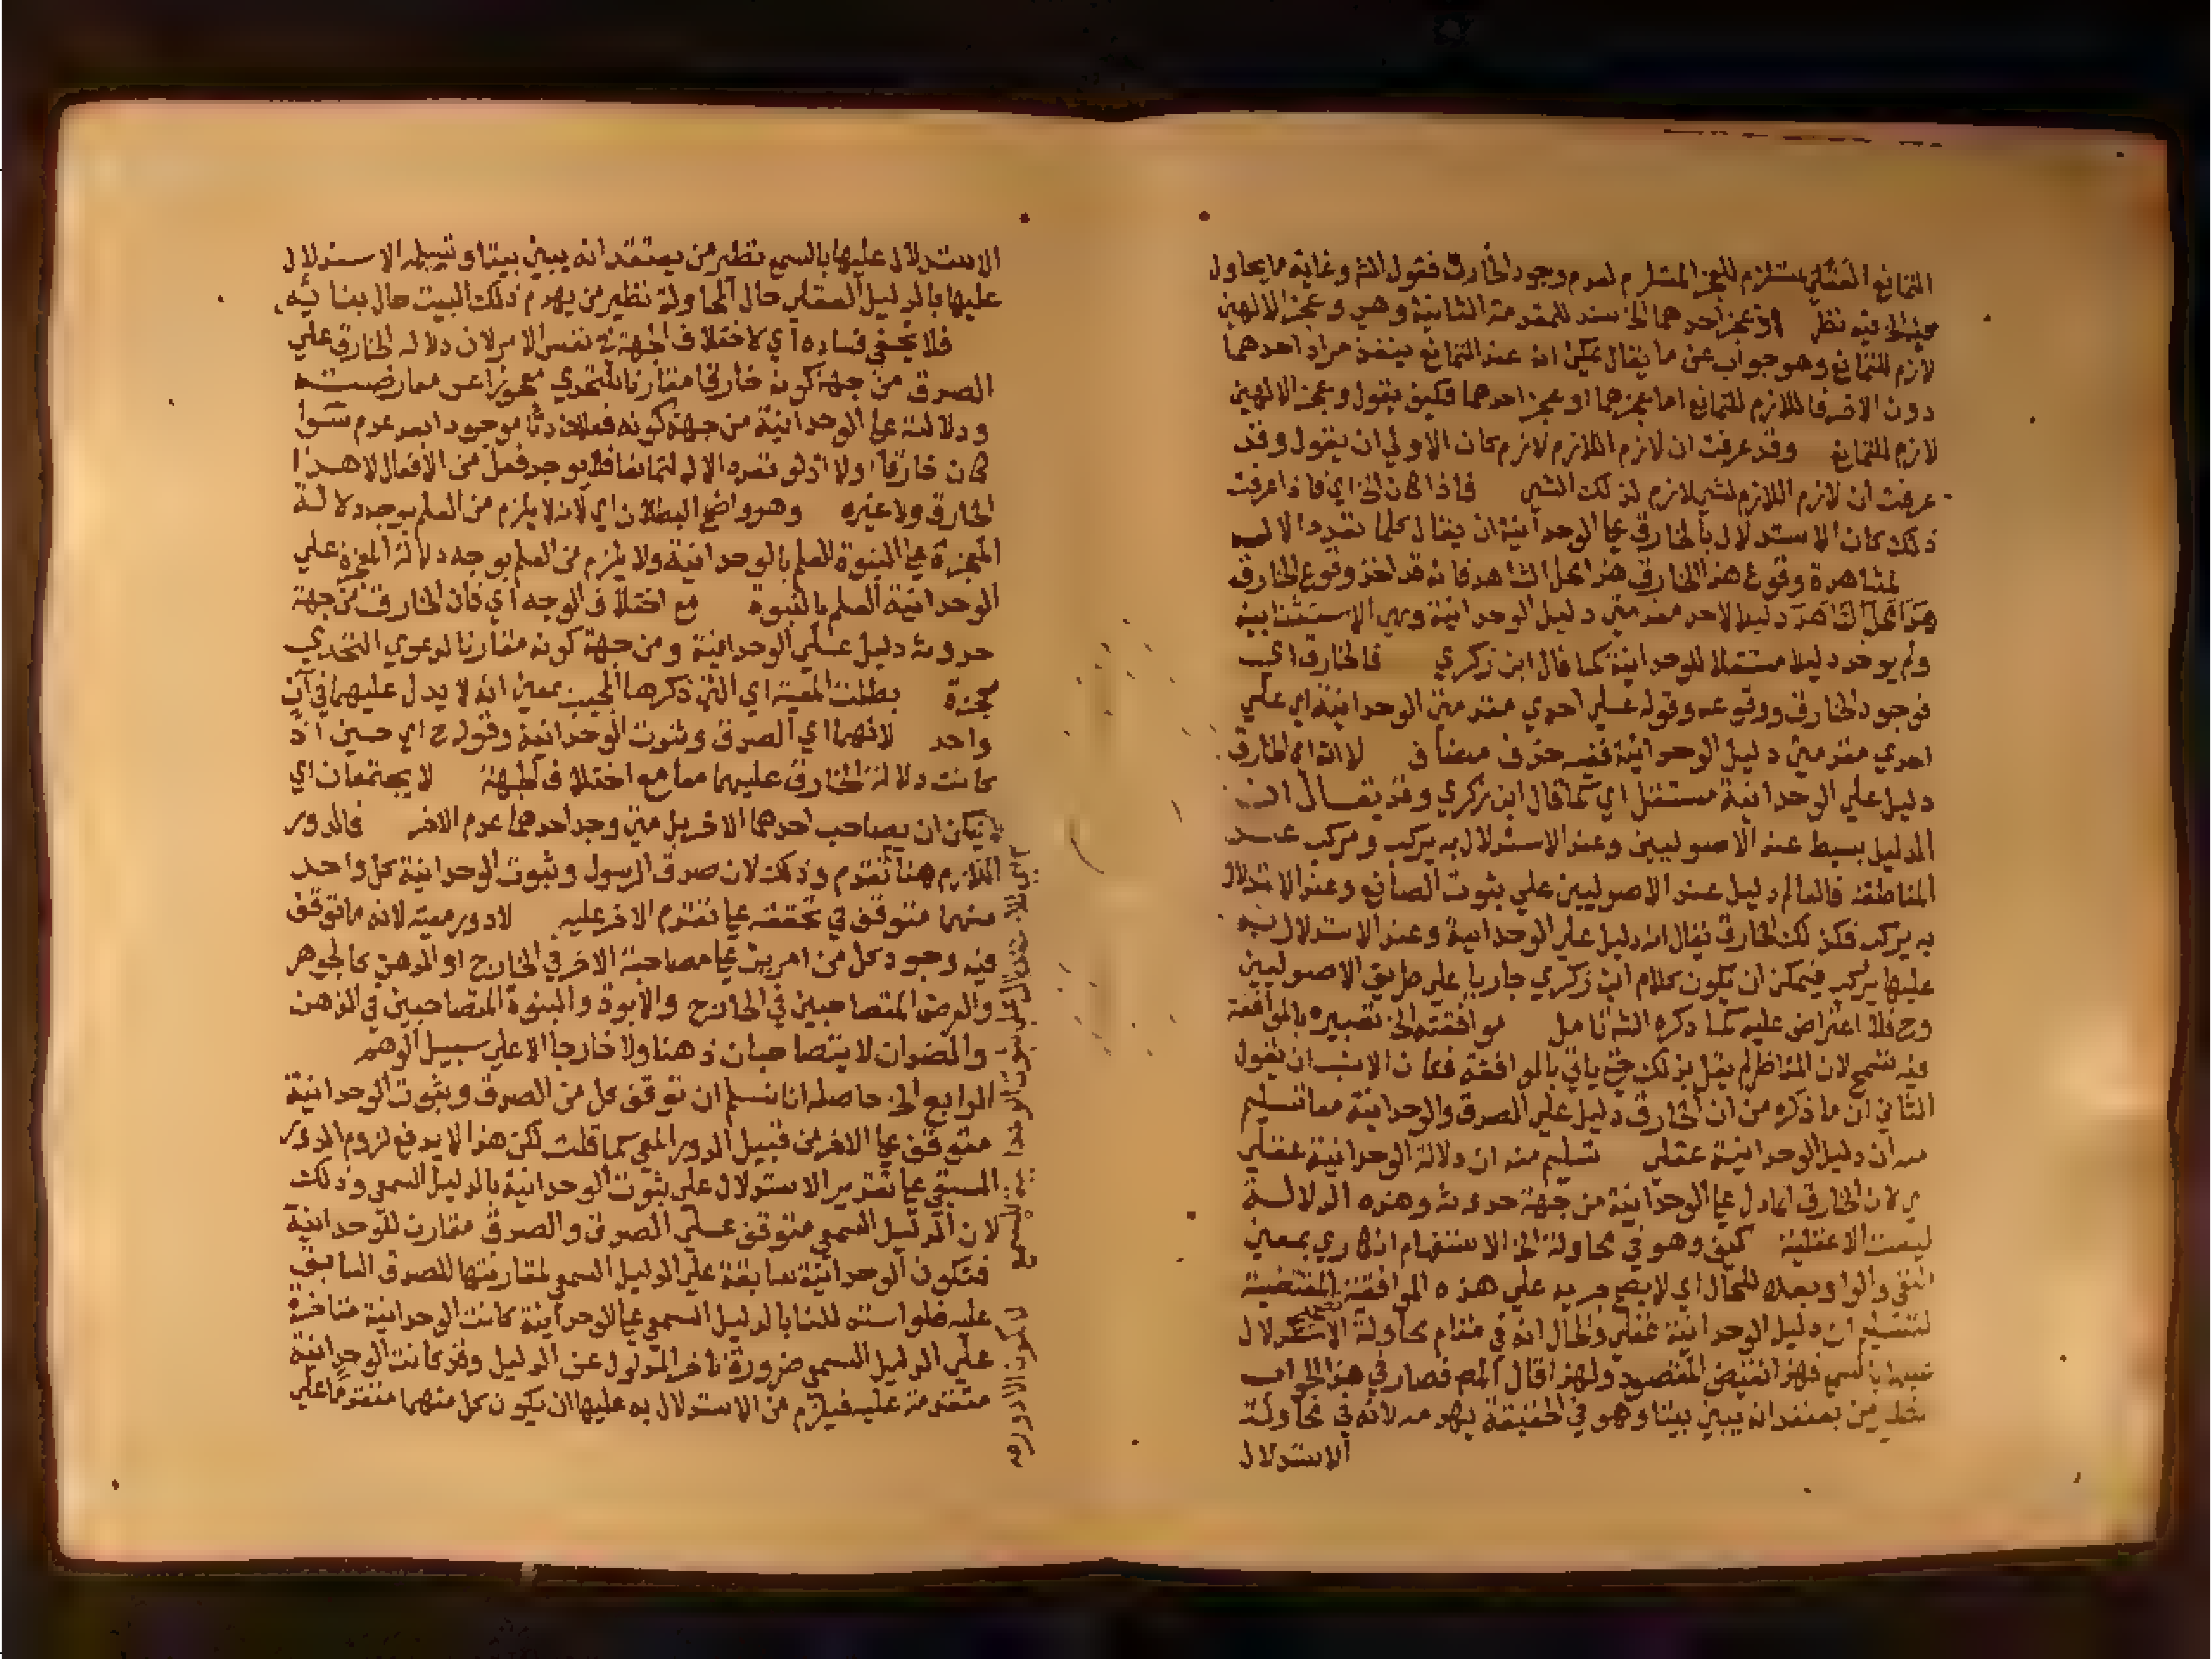 التمانع العقلي مستلزم للعجز المستلزم لعدم وجود الخارق فقول الشه وغاية ما يحاول
فيه نظر او عجز احدهما الخ سند للمقدمة الثانية وهي وعجز الالهين
لازم للتمانع وهو جواب عن ما يقال يمكن انه عند التمانع ينفذ مراد احدهما
دون الاخر فاللازم للتمانع اما عجزهما او عجز احدهما فكيف يقول وعجز الالهين
لازم للتمانع وقد عرفت ان لازم اللازم لازم كان الاولي ان يقول وقد
عرفت ان لازم اللازم لشي لازم لذلك الشي فاذا كان الخ اي فاذا عرفت
ذلك كان الاستدلال بالخارق علي الوحدانية ان يقال كلما تعدد الاله
لمشاهدة وقوع هذا الخارق هذا محل الشاهد فانه قد اخذ وقوع الخارق
هذا محل الشاهد دليلا لاحد مقدمتي دليل الوحدانية وهي الاستثنائية
ولم يوخذ دليلا مستقلا للوحدانية كما قال ابن زكري فالخارق اي
فوجود الخارق ووقوعه وقوله علي احدي مقدمتي الوحدانية اي علي
احدي مقدمتي دليل الوحدانية ففيه حذف مضاف لا انه اي الخارق
دليل علي الوحدانية مستقل اي كما قال ابن زكري وقد يقال ان
الدليل بسيط عند الاصوليين وعند الاستدلال به يركب ومركب عند
المناطقة فالعالم دليل عند الاصوليين علي ثبوت الصانع وعند الاستدلال
به يركب فكذلك الخارق يقال انه دليل علي الوحدانية وعند الاستدلال به
عليها يركب فيمكن ان يكون كلام ابن زكري جاريا علي طريق الاصوليين
وح فلا اعتراض عليه كما ذكره الشه تامل موافقته الخ تعبيره بالموافقة
فيه تسمح لان المناظر لم يقل بذلك حتي ياتي بالموافقة فكان الانسب ان يقول
الثاني ان ما ذكره من ان الخارق دليل علي الصدق والوحدانية معا تسليم
منه ان دليل الوحدانية عقلي تسليم منه ان دلالة الوحدانية عقلي
ي لان الخارق انما دل علي الوحدانية من جهة حدوثه وهذه الدلالة
ليست الا عقلية كيف وهو في محاولة الخ الاستفهام انكاري بمعني
النفي والواو بعده للحال اي لا يصح جريه علي هذه الموافقة المقتضية
لتسليم ان دليل الوحدانية عقلي والحال انه في مقام محاولة الاستدلال
بالسمع فهذا نقيض المقصود ولهذا قال المص فصار في هذا الجواب
من يعتقد انه يبني بيتا وهو في الحقيقة يهدمه لانه في محاولة
الاستدلال
الاستدلال عليها بالسمع نظير من يعتقد انه يبني بيتا وتسبيله الاستدلال
عليها بالدليل العقلي حال المحاولة نظير من يهدم ذلك البيت حال بنائه
فلا يخفي فساده اي لاختلاف الجهة في نفس الامر لان دلالة الخارق علي
الصدق من جهة كونه خارقا مقارنا للتحدي معجوزا عن معارضته
ودلالته علي الوحدانية من جهة كونه فعلا حادثا موجودا بعد عدم سوا
كان خارقا او لا اذ لو تعدد الاله لتمانعا فلا يوجد فعل من الافعال لا هذا
الخارق ولا غيره وهو واضح البطلان اي لانه لا يلزم من العلم بوجه دلالة
المعجزة علي النبوة العلم بالوحدانية ولا يلزم من العلم بوجه دلالة المعجزة علي
الوحدانية العلم بالنبوة مع اختلاف الوجه اي فان الخارق من جهة
حدوثه دليل علي الوحدانية ومن جهة كونه مقارنا لدعوي التحدي
معجزة بطلت المعية اي التي ذكرها المجيب بمعني انه لا يدل عليهما في آن
واحد لانهما اي الصدق وثبوت الوحدانية وقوله ح اي حين اذ
كانت دلالة الخارق عليهما معا مع اختلاف الجهة لا يجتمعان اي
لا يمكن ان يصاحب احدهما الاخر بل متي وجد احدهما عدم الاخر فالدور
اللازم هنا تقدم وذلك لان صدق الرسول وثبوت الوحدانية كل واحد
منهما متوقف في تحققه علي تقدم الاخر عليه لا دور معية لانه ما توقف
فيه وجود كل من امرين علي مصاحبة الاخر في الخارج او الذهن كالجوهر
والعرض المتصاحبين في الخارج والابوة والبنوة المتصاحبين في الذهن
والضدان لا يتصاحبان ذهنا ولا خارجا الا علي سبيل الوهم
الرابع الخ حاصله انا نسلم ان توقف كل من الصدق وثبوت الوحدانية
متوقف علي الاخر من قبيل الدور المعي كما قلت لكن هذا لا يدفع لزوم الدور
السبقي علي تقدير الاستدلال علي ثبوت الوحدانية بالدليل السمعي وذلك
لان الدليل السمعي متوقف علي الصدق والصدق مقارن للوحدانية
فتكون الوحدانية سابقة علي الدليل السمعي لمقارنتها للصدق السابق
عليه فلو استدللنا بالدليل السمعي علي الوحدانية كانت الوحدانية متاخرة
علي الدليل السمعي ضرورة تاخر المدلول عن الدليل وقد كانت الوحدانية
متقدمة عليه فيلزم من الاستدلال به عليها ان يكون كل منهما متقدما علي